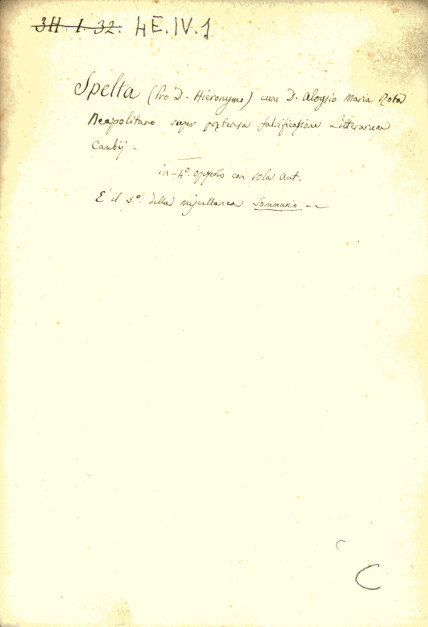 3H. I. 32. 4E.IV.1
Spelta (Pro D. Hieronymo) cum D. Aloysio Maria Rota
Neapolitano super prætensa falsificatione Litterarum
Cambij -
in-4º. con sola ant.
E' il 5º. della miscellanea Sommario -
C